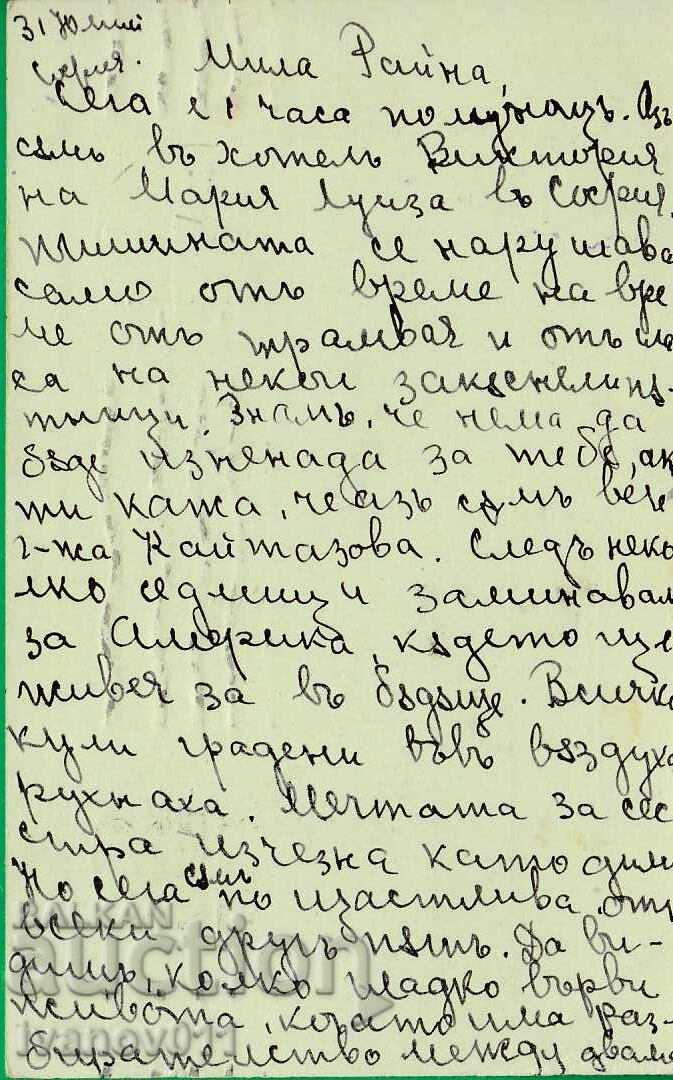 31 Юлий
София.
Мила Райна,
Сега е 1 часа полунощь. Азъ
съмь въ хотелъ Виктория
на Мария Луиза въ София,
тишината се нарушава
само отъ време на вре
ме отъ трамвая и отъ гла
са на некои закъснели пъ-
тници. Знамъ, че нема да
бъде изненада за тебе, ак
ти кажа, че азъ съмъ вече
г-жа Кайтазова. Следъ неко
лко седмици заминавам
за Америка, където ще
живея за въ бъдъще. Всичк
кули градени въвъ въздуха
рухнаха. Мечтата за сес
тра изчезна като дим
Но сега съмъ по щастлива от
всеки другъ пъть. Да ви-
дишъ, колко гладко върви
живота, когато има раз-
бирателство между двам
BALKAN
auction
ivanev011